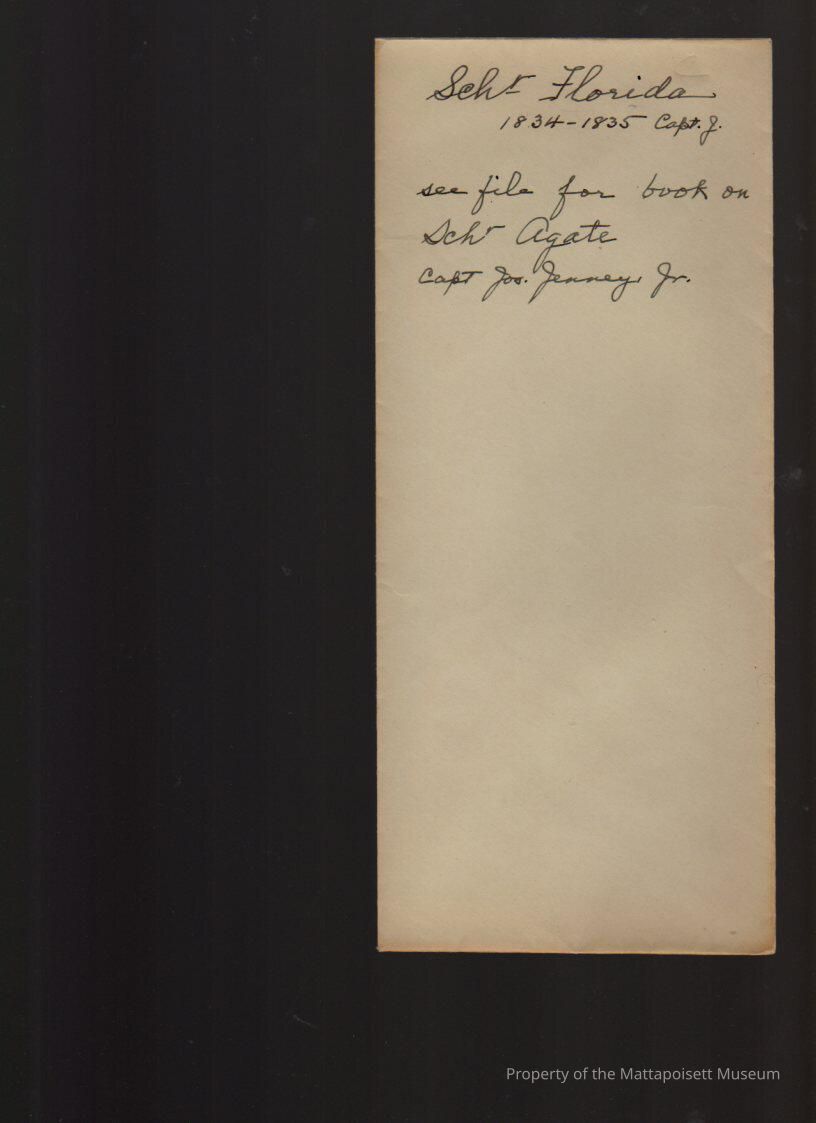 Schr Florida
1834-1835 Capt. J.
see file for book on
Schr Agate
Capt Jos. Jenney, Jr.
Property of the Mattapoisett Museum